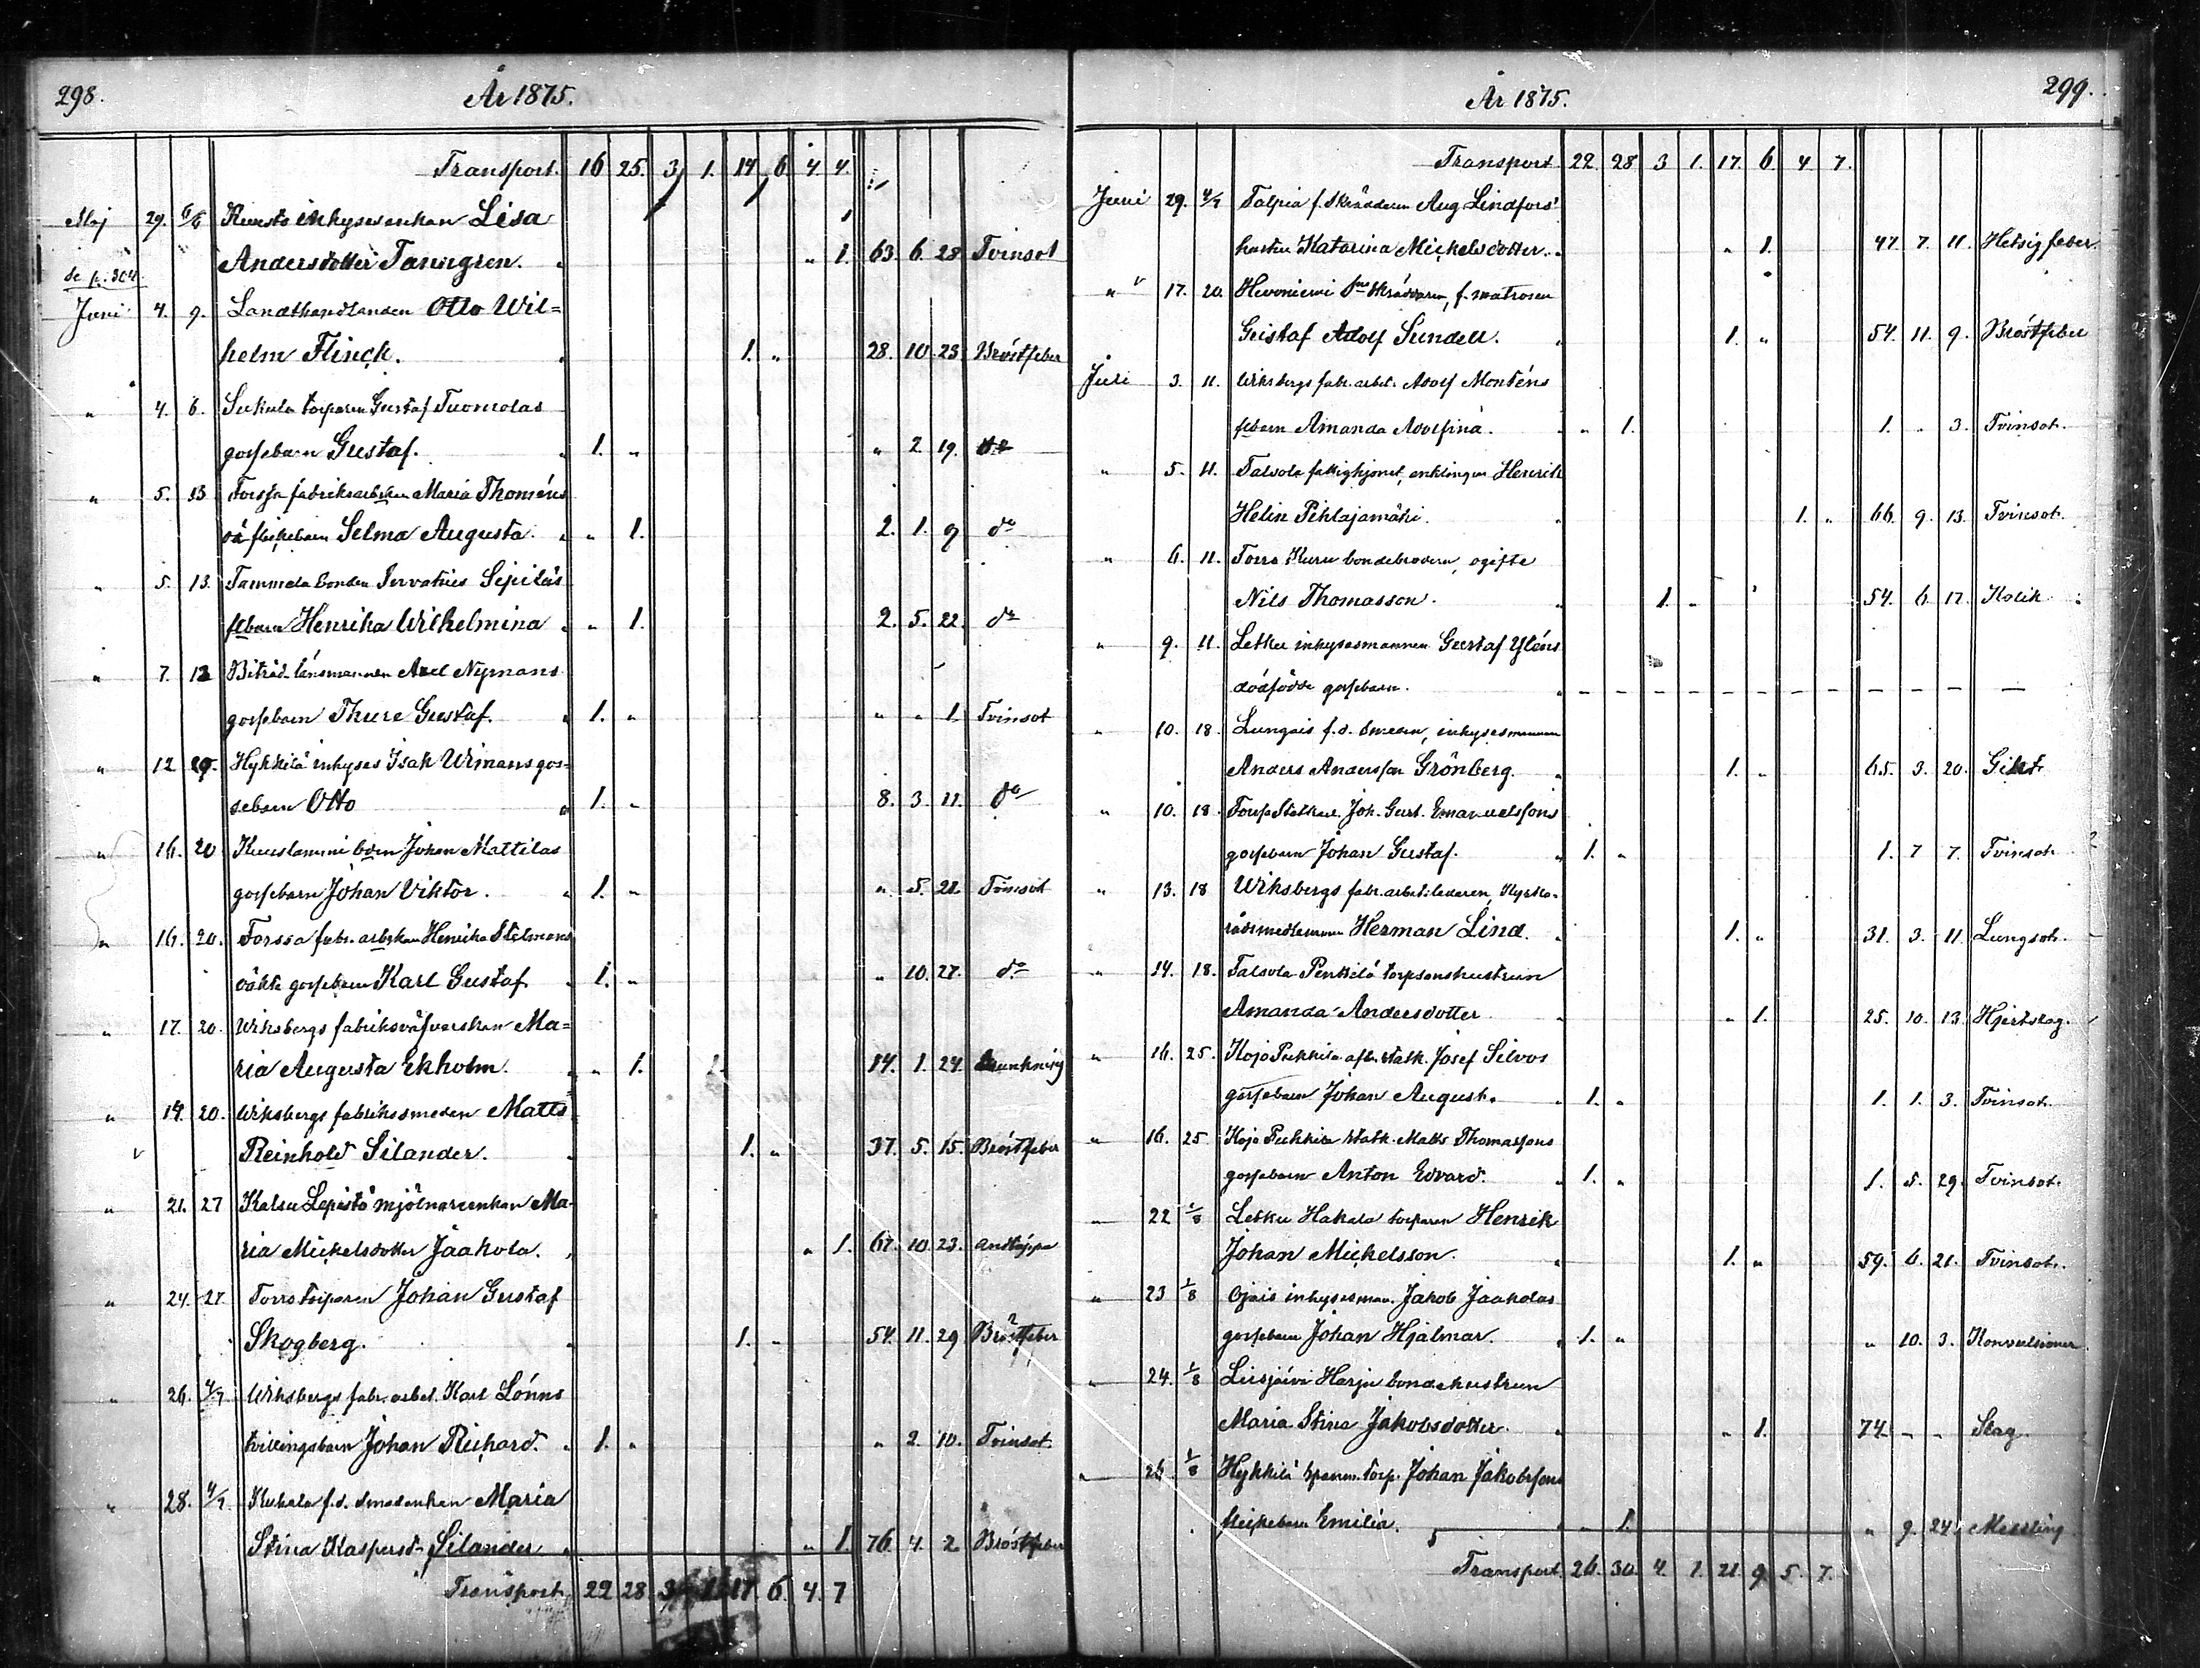 298.
År 1875.
Transport. 16 25. 3 1. 14 6. 4 4.
Maj 29. 6/6 inhysesenkan Lisa
Andersdotter Tanngren. " 1. 63. 6. 28. Tvinsot
se p. 304.
Juni 4. 9. Landthandlanden Otto Wil=
helm Flinck. 1. " 28. 10. 23. Bröstfeber
" 4. 6. Sukula torparen Gustaf Tuomolas
gossebarn Gustaf. 1. " " 2. 19. do
" 5. 13. Forssa fabriksarbskan Maria Thoméns
oä flickebarn Selma Augusta. " 1. 2. 1. 9 do
" 5. 13. Tammela bonden Servatius Sipiläs
flbarn Henrika Wilhelmina " 1. 2. 5. 22. do
" 7. 13 Biträd. länsmannen Axel Nymans
gossebarn Thure Gustaf. 1. " " " 1. Tvinsot
" 12 29. Hykkilä inhyses Isak Wimans gos=
sebarn Otto 1. " 8. 3. 11. do
" 16. 20 Kuuslammi bdn Johan Mattilas
gossebarn Johan Viktor. 1. " " 5. 21. Tvinsot
" 16. 20. Forssa fabr. arbskan Henrika Stilmans
oäkta gossebarn Karl Gustaf 1. " " 10. 27. do
" 17. 20. Wiksbergs fabriksväfverskan Ma=
ria Augusta Ekholm. " 1. 1. 14. 1. 24. Drunkning
" 19. 20. Wiksbergs fabrikssmeden Matts
Reinhold Silander. 1. " 37. 5. 15. Bröstfeber
" 21. 27 Kalsu Lepistö mjölnareenkan Ma-
ria Mickelsdotter Jaakola. " 1. 67. 10. 23. Andtäppa
" 24. 27. Torro torparen Johan Gustaf
Skogberg. 1. " 54. 11. 29 Bröstfeber
" 26. 4/7 Wiksbergs fabr. arbet. Karl Lönns
tvillingsbarn Johan Richard. 1. " " 2. 10. Tvinsot.
" 28. 4/7 Kuhala f.d. smedenkan Maria
Stina Kaspersd- Silander " 1. 76. 4. 2 Bröstfeber
Transport. 22 28. 3 1. 17. 6. 4. 7
År 1875.
299.
Transport. 22. 28 3 1. 17. 6. 4 7.
Juni 29. 4/7 Talpia f. skräddaren Aug. Lindfors'
hustru Katarina Mickelsdotter. " 1. 47. 7. 11. Hetsig feber.
" 17. 20. Hevoniemi skräddaren, f. matrosen
Gustaf Adolf Sundell. 1. " 54. 11. 9. Bröstfeber
Juli 3. 11. Wiksbergs fabr. arbet. Adolf Monténs
flbarn Amanda Adolfina. " 1. 1. " 3. Tvinsot.
" 5. 11. Talsola fattighjonet, enklingen Henrik
Helin Pihlajamäki. 1. " 66. 9. 13. Tvinsot.
" 6. 11. Torro Kuru bondebrodern, ogifte
Nils Thomasson. 1. " 54. 6. 17. Kolik
" 9. 11. Letku inhysesmannen Gustaf Yléns
dödfödde gossebarn. – – – – – – – – – – – –
" 10. 18. Lungais f.d. smeden, inhysesmannen
Anders Andersson Grönberg. 1. " 65. 3. 20. Gikt
" 10. 18 Forssa Statkarl. Joh. Gust. Emanuelssons
gossebarn Johan Gustaf. 1. " 1. 7 7. Tvinsot.
" 13. 18 Wiksbergs fabr. arbetsledaren, Kyrko-
rådsmedlemmen Herman Lind. 1. " 31. 3. 11. Lungsot.
" 14. 18. Talsola Penkkilä torpsonshustrun
Amanda Andersdotter " 1. 25. 10. 13. Hjertslag.
" 16. 25. Kojo Pukkila afsk. statk. Josef Silvos
gossebarn Johan August. 1. " 1. 1. 3. Tvinsot.
" 16. 25 Kojo Pukkila statk. Matts Thomassons
gossebarn Anton Edvard. 1. " 1. 5. 29. Tvinsot.
" 22 1/8 Letku Hakala torparen Henrik
Johan Mickelsson. 1. " 59. 6. 21. Tvinsot.
" 23 1/8 Ojais inhysesman. Jakob Jaakolas
gossebarn Johan Hjalmar. 1. " " 10. 3. Konvulsioner
" 24. 1/8 Liesjärvi Harju bondehustrun
Maria Stina Jakobsdotter. " 1. 74. – – Slag.
" 26 1/8 Hykkilä torp. Johan Jakobssons
flickebarn Emilia. " 1. " 9. 24. Messling
Transport. 26. 30. 4. 1. 21. 9. 5. 7.